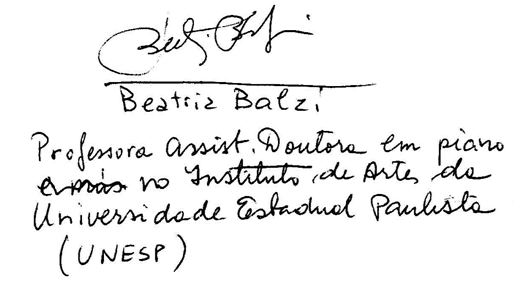 Beatriz Balzi
Professora Assist. Doutora em piano
no Instituto de Artes da
Universidade Estadual Paulista
(UNESP)